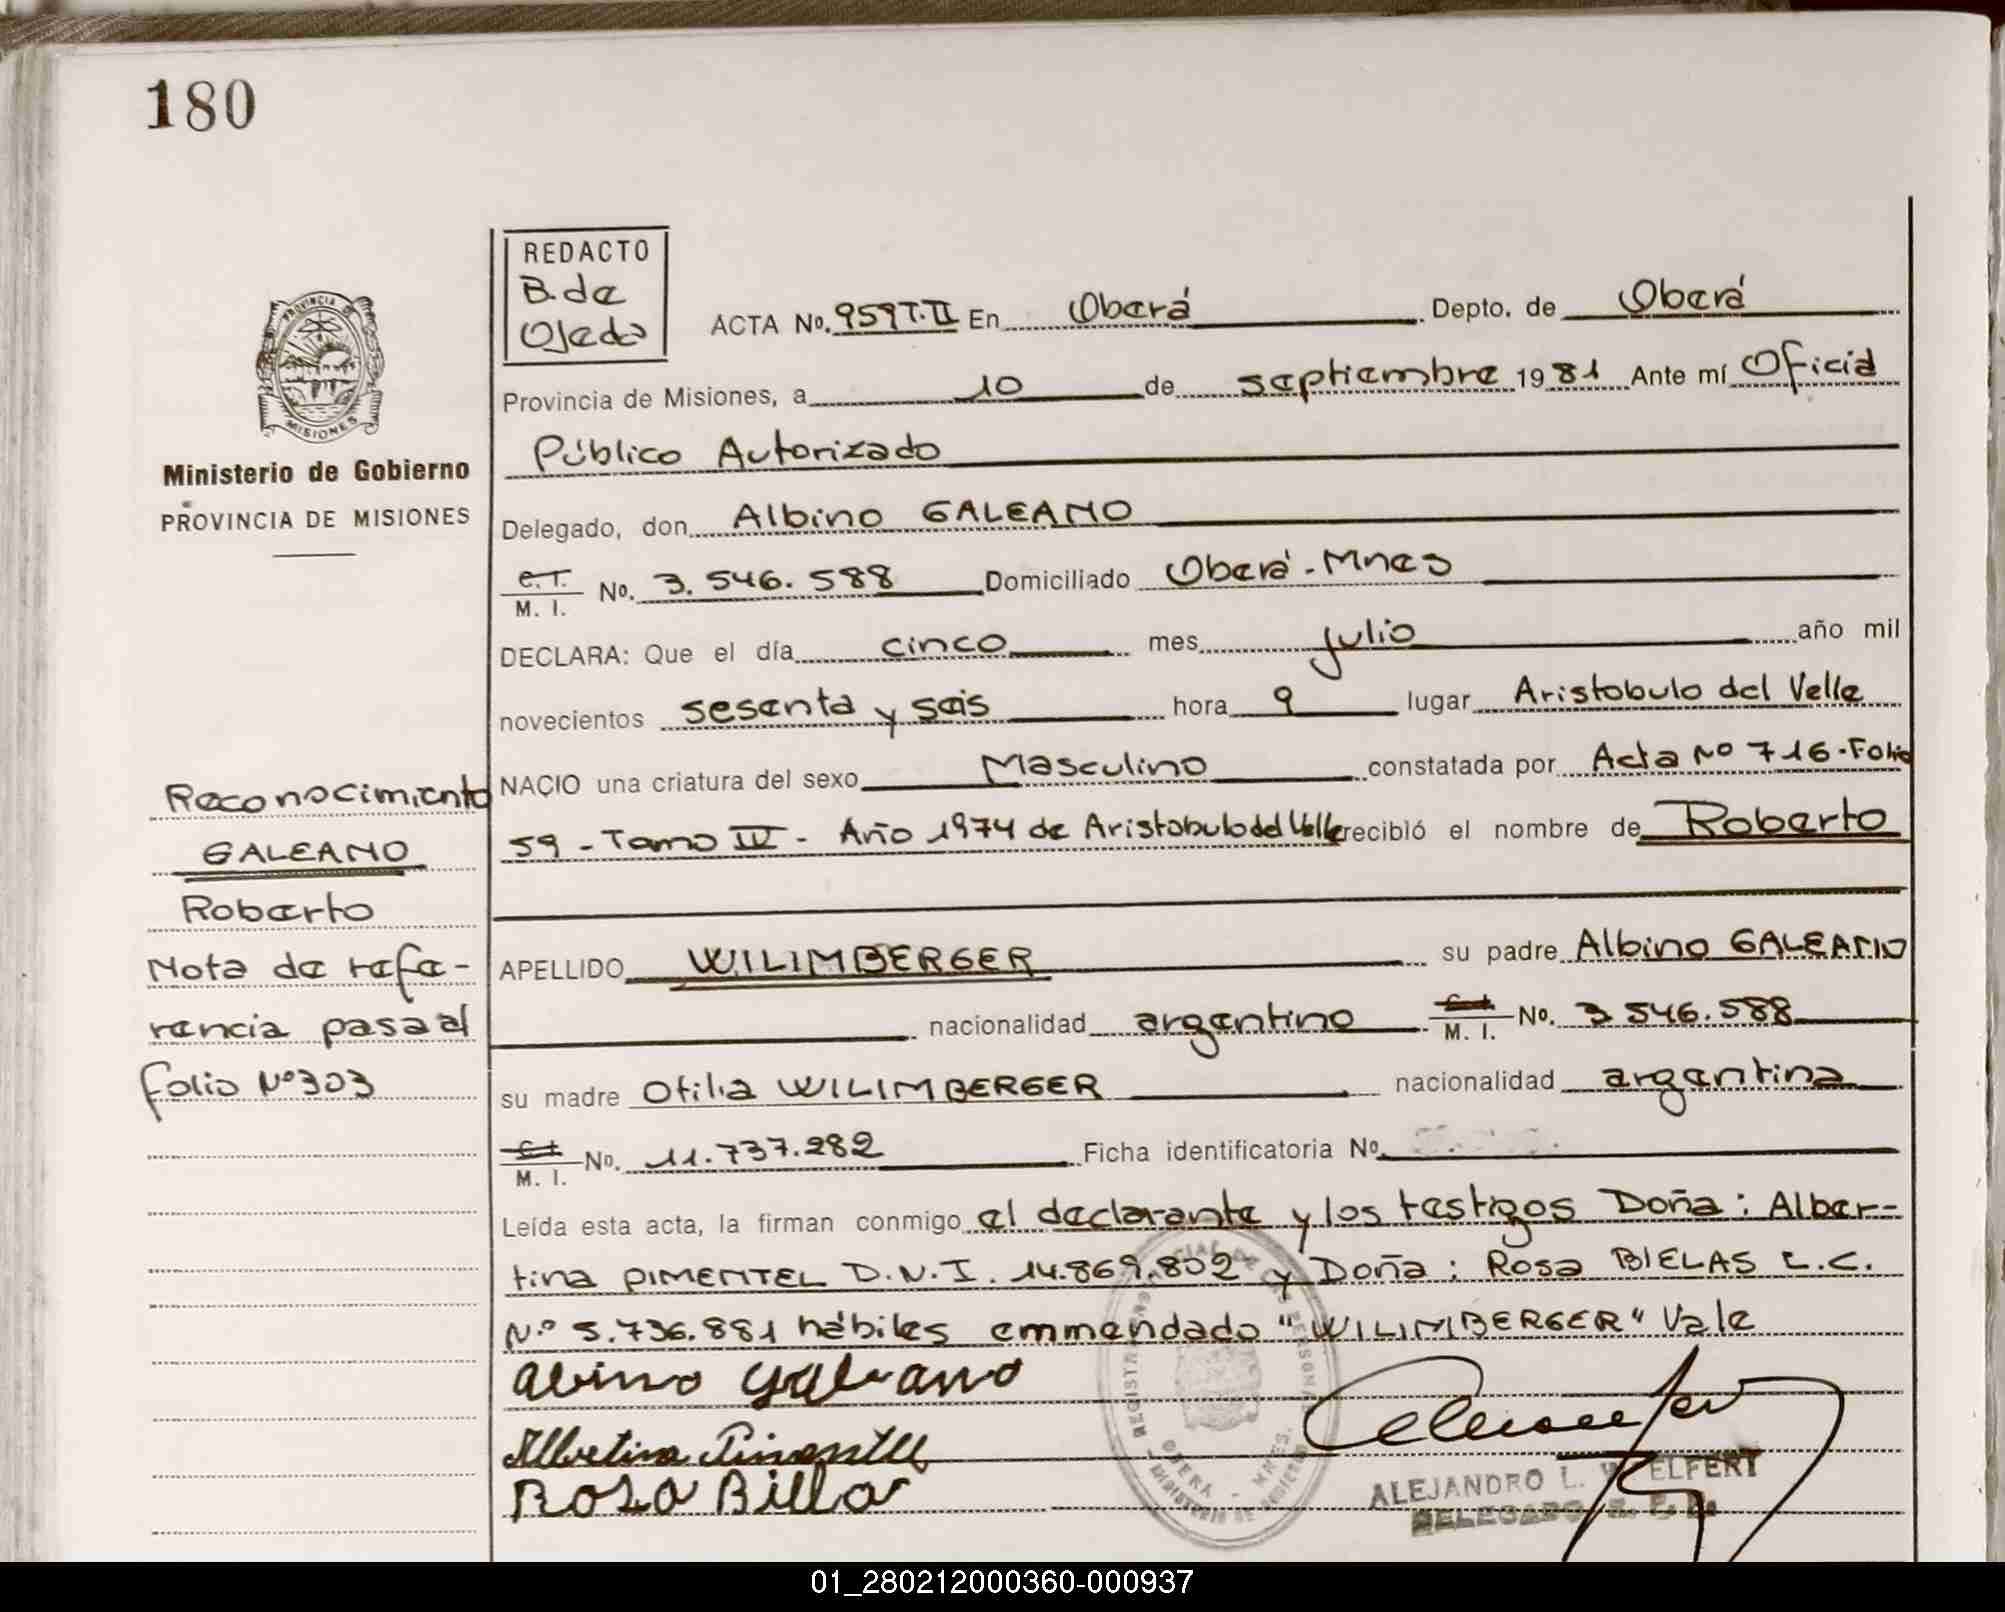 180
REDACTO
B. de
Ojeda
ACTA No. 959 T. II En Oberá Depto. de Oberá
Provincia de Misiones, a 10 de septiembre 1981 Ante mí Oficial
Público Autorizado
Delegado, don Albino GALEANO
C.I. M. I. No. 3.546.588 Domiciliado Oberá - Mnes
DECLARA: Que el día cinco mes julio año mil
novecientos sesenta y seis hora 9 lugar Aristobulo del Valle
NACIO una criatura del sexo Masculino constatada por Acta Nº 716 - Folio
59 - Tomo IV - Año 1974 de Aristobulo del Valle recibió el nombre de Roberto
APELLIDO WILIMBERGER su padre Albino GALEANO
nacionalidad argentino M. I. No. 3 546.588
su madre Otilia WILIMBERGER nacionalidad argentina
M. I. No. 11.737.282 Ficha identificatoria No.
Leída esta acta, la firman conmigo el declarante y los testigos Doña: Alber-
tina PIMENTEL D.N.I. 14.869.802 y Doña: Rosa BIELAS L.C.
N.º 5.736.881 hábiles emmendado "WILIMBERGER" Vale
Albino Galeano
Albertina Pimentel
Rosa Billa
ALEJANDRO L. W ELFERT
DELEGADO
PROVINCIA DE
MISIONES
Ministerio de Gobierno
PROVINCIA DE MISIONES
Reconocimiento
GALEANO
Roberto
Nota de refe-
rencia pasa al
folio Nº 303
01_280212000360-000937